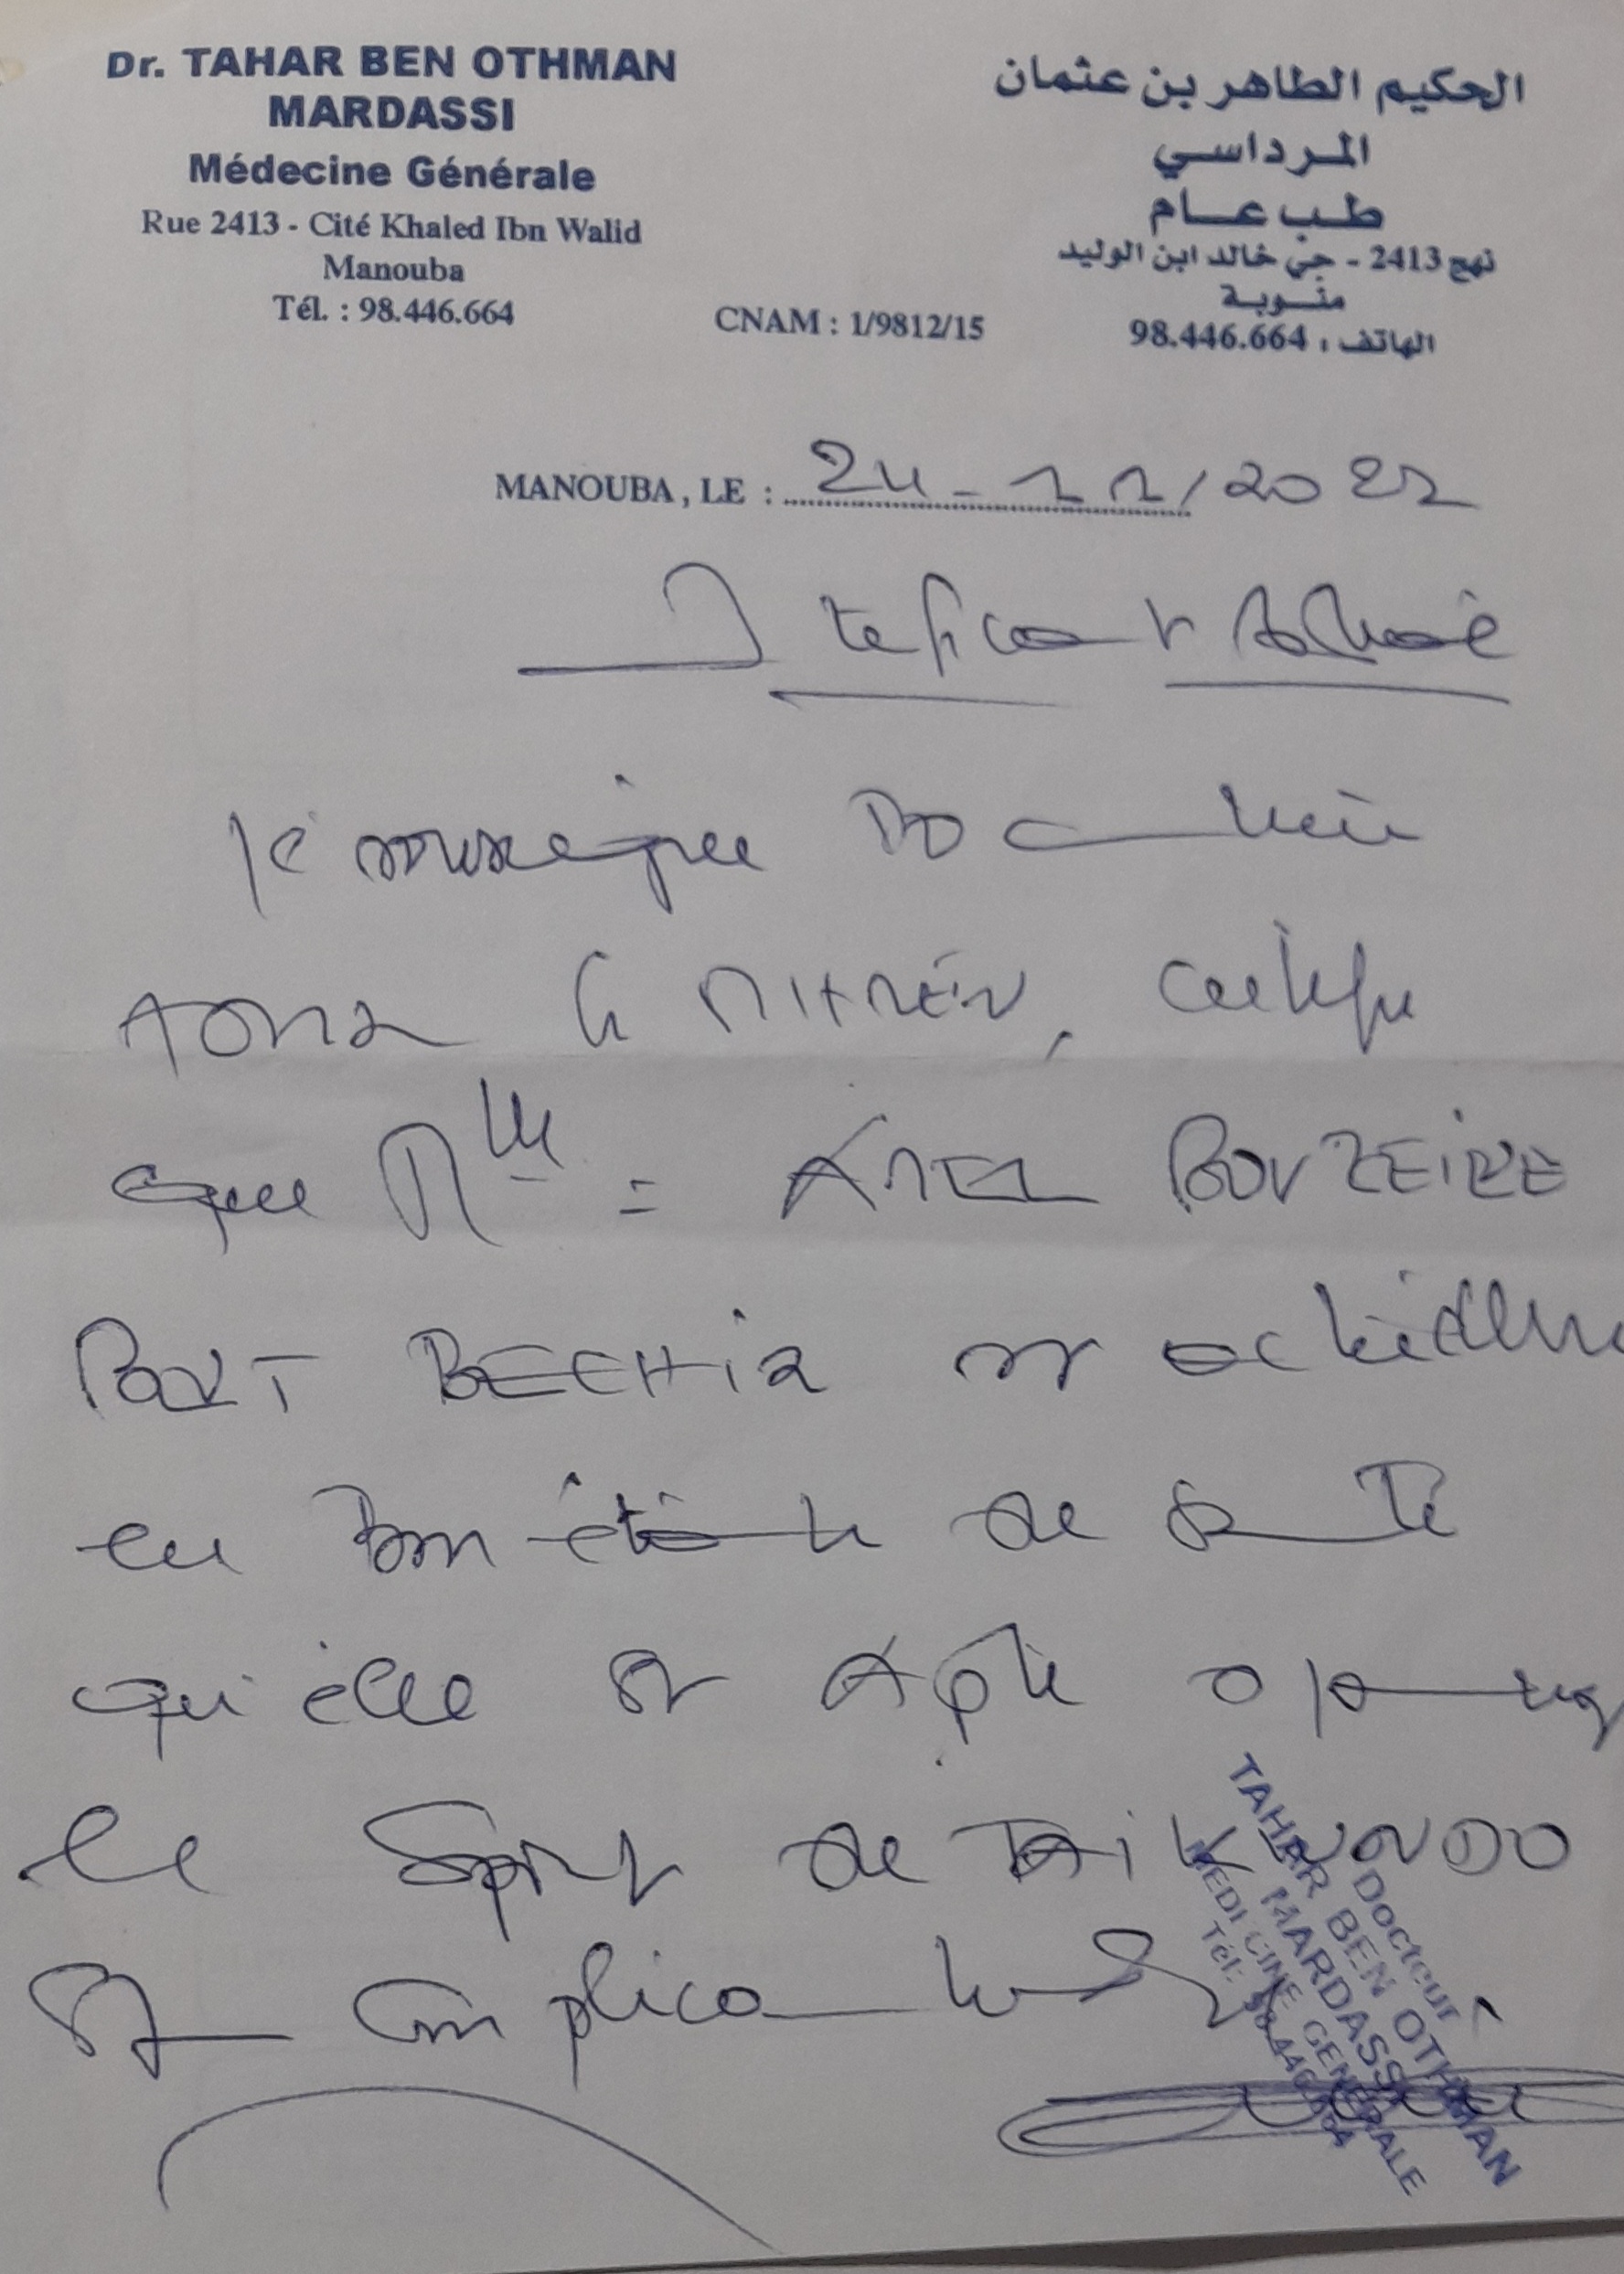 Dr. TAHAR BEN OTHMAN
MARDASSI
Médecine Générale
Rue 2413 - Cité Khaled Ibn Walid
Manouba
Tél. : 98.446.664
CNAM : 1/9812/15
الحكيم الطاهر بن عثمان
المرداسي
طب عام
نهج 2413 - حي خالد ابن الوليد
منوبة
الهاتف : 98.446.664
MANOUBA, LE : 24-11/2022
Je soussigné Docteur
certifie
que Mlle = AMEL BOUZEIRE
BENT BECHIR est actuellement
en bon état de santé
qu'elle est Apte
le Sport de TAIKWONDO
Docteur
TAHAR BEN OTHMAN
MARDASSI
MEDICINE GENERALE
Tél: 98.446.664